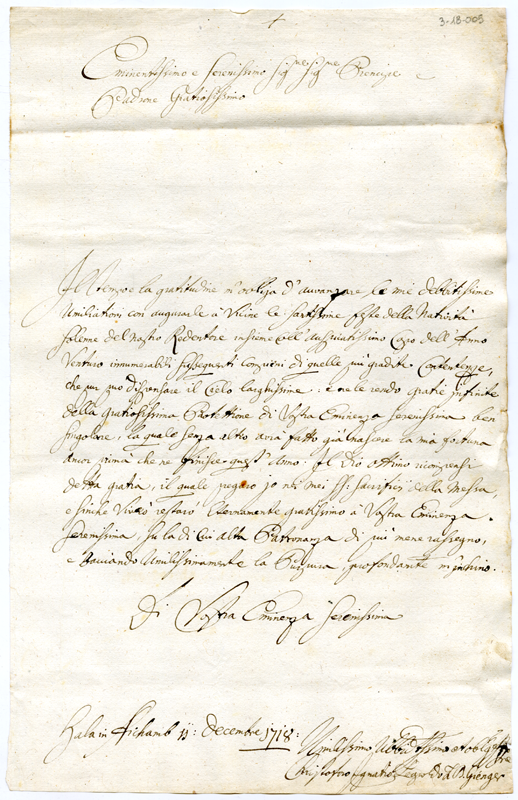 3-18-009
+
Eminentissimo e Serenissimo Sig.re Sig.re Prencipe e
Padrone Gratiosissimo
Il tempo e la gratitudine m'obliga d'avvanzare le mie debitissime
Umiliationi con augurarle à Vicine le santissime feste della Natività
solenne del Nostro Redentore insieme coll' Capo dell' Anno
Venturo innumerabili susseguenti di quelle più gradite Contentezze,
che può dispensare il Cielo larghissime: e ne le rendo gratie infinite
della gratiosissima Protettione di Vostra Eminenza Serenissima ben
singolare, la quale senza altro avrà fatto già nascere la mia fortuna
ancor prima che ne finisce quest' Anno. Il Dio ottimo ricompensi
detta gratia, il quale pregarò io nei miei SS. Sacrifici della Messa,
e sinche Vivrò restarò Eternamente gratissimo à Vostra Eminenza
Serenissima, su la di Cui alta Patronanza di più mene rassegno,
e bacciando Umilissimamente la Purpura, profondante m'inchino.
Di Vostra Eminenza Serenissima
Hala in 11: Decembre 1718:
Umilissimo
Christoforo Ignatio